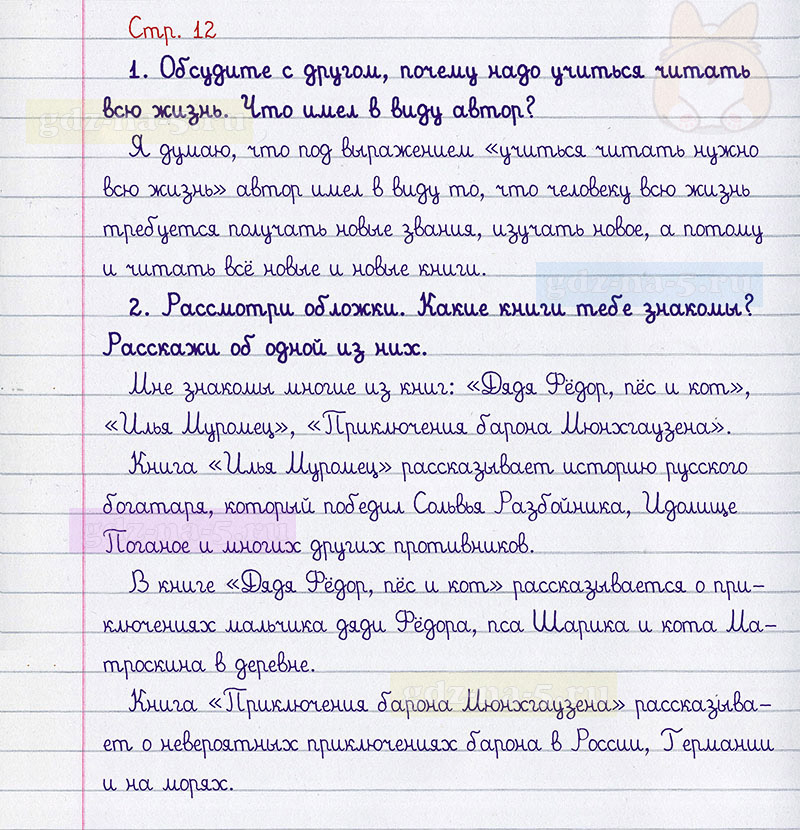 Стр. 12
1. Обсудите с другом, почему надо учиться читать
всю жизнь. Что имел в виду автор?
gdz-na-5.ru
Я думаю, что под выражением «учиться читать нужно
всю жизнь» автор имел в виду то, что человеку всю жизнь
требуется получать новые звания, изучать новое, а потому
и читать всё новые и новые книги.
gdz-na-5.ru
2. Рассмотри обложки. Какие книги тебе знакомы?
Расскажи об одной из них.
Мне знакомы многие из книг: «Дядя Фёдор, пёс и кот»,
«Илья Муромец», «Приключения барона Мюнхгаузена».
Книга «Илья Муромец» рассказывает историю русского
богатаря, который победил Сольвья Разбойника, Идолище
gdz-na-5.ru
Поганое и многих других противников.
В книге «Дядя Фёдор, пёс и кот» рассказывается о при-
ключениях мальчика дяди Фёдора, пса Шарика и кота Ма-
троскина в деревне.
gdz-na-5.ru
Книга «Приключения барона Мюнхгаузена» рассказыва-
ет о невероятных приключениях барона в России, Германии
и на морях.